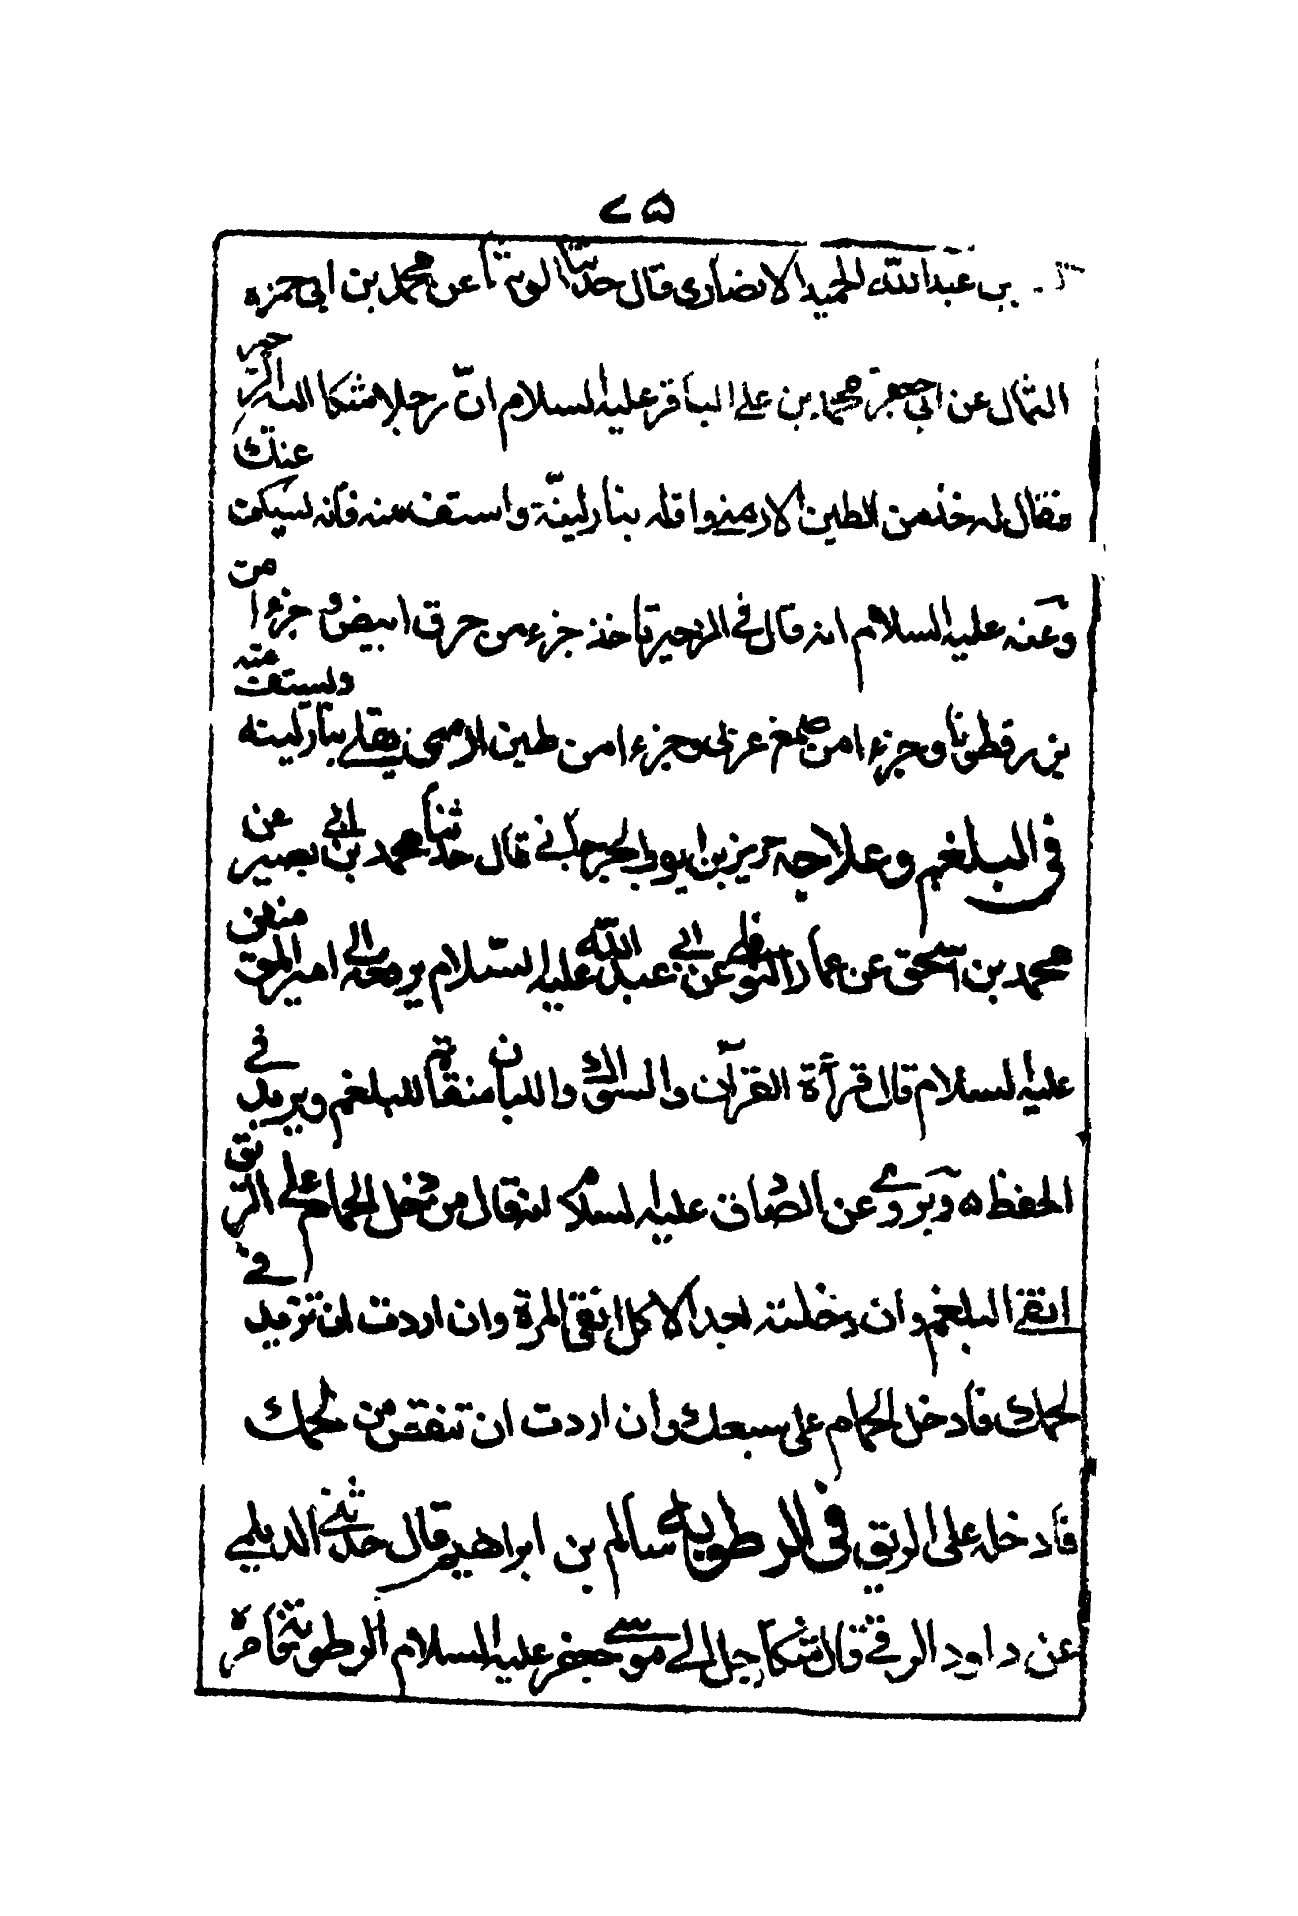 ٧٥
بن عبد الله الحميد الانصاری قال حدثنا ابو بن عن محمد بن ابی حمزه
الثمالی عن ابی جعفر محمد بن علی الباقر علیه السلام انّ رجلا شکا الیه الزحیر
فقال له خذ من الطین الارمنی واقله بنار لینّة واستف منه فانه لیسکن عنک
وعنه علیه السلام انه قال فی الزحیر تأخذ جزءا من حرق ابیض وجزءا من
بزر قطونا وجزءا من صمغ عربی وجزءا من طین الارمنی یقلی بنار لینه ویستف منه
فی البلغم وعلاجه حریز بن ایوب الجرجانی قال حدثنا محمد بن ابی بصیر عن
محمد بن اسحق عن عمار النوفلی عن ابی عبد الله علیه السّلام یرفعه الی امیر المؤمنین
علیه السلام قال قرأة القرآن والسواک واللبان منقاة للبلغم ویزید فی
الحفظ ٥ ویروی عن الصادق علیه السلام انه قال من دخل الحمام علی الریق
انقی البلغم وان دخلته بعد الاکل انقی المرة وان اردت ان تزید فی
لحمک فادخل الحمام علی شبعک وان اردت ان تنقص من لحمک
فادخله علی الریق فی الرطوبة سالم بن ابراهیم قال حدثنی الدیلمی
عن داود الرقی قال شکا رجل الی موسی جعفر علیه السلام الرطوبة فامره